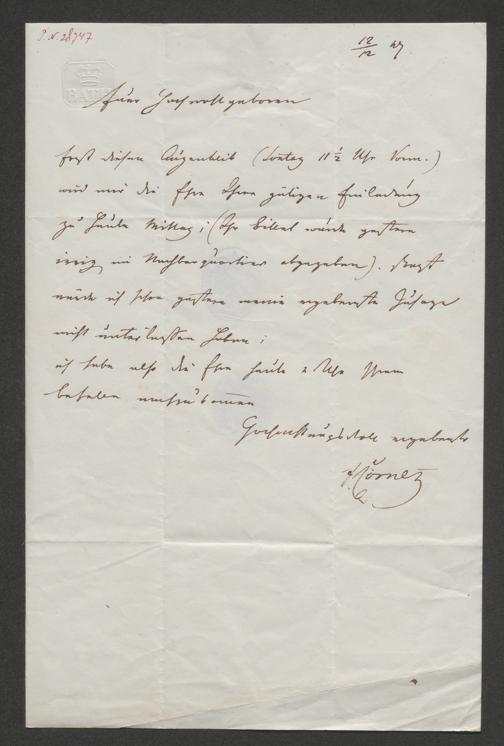 I.N. 28747
12/12 47
BATH
Euer Hochwohlgeboren
Erst diesen Augenblick (Sontag 11 1/2 Uhr Vorm.)
wird mir die Ehre Ihrer gütigen Einladung
zu heute Mittag; (Ihr Billet wurde gestern
irrig im Nachbarquartier abgegeben). Sonst
würde ich schon gestern meine ergebenste Zusage
nicht unterlassen haben;
ich habe also die Ehre heute 2 Uhr Ihrem
Befehle nachzukommen
Hochachtungsvoll ergebenster